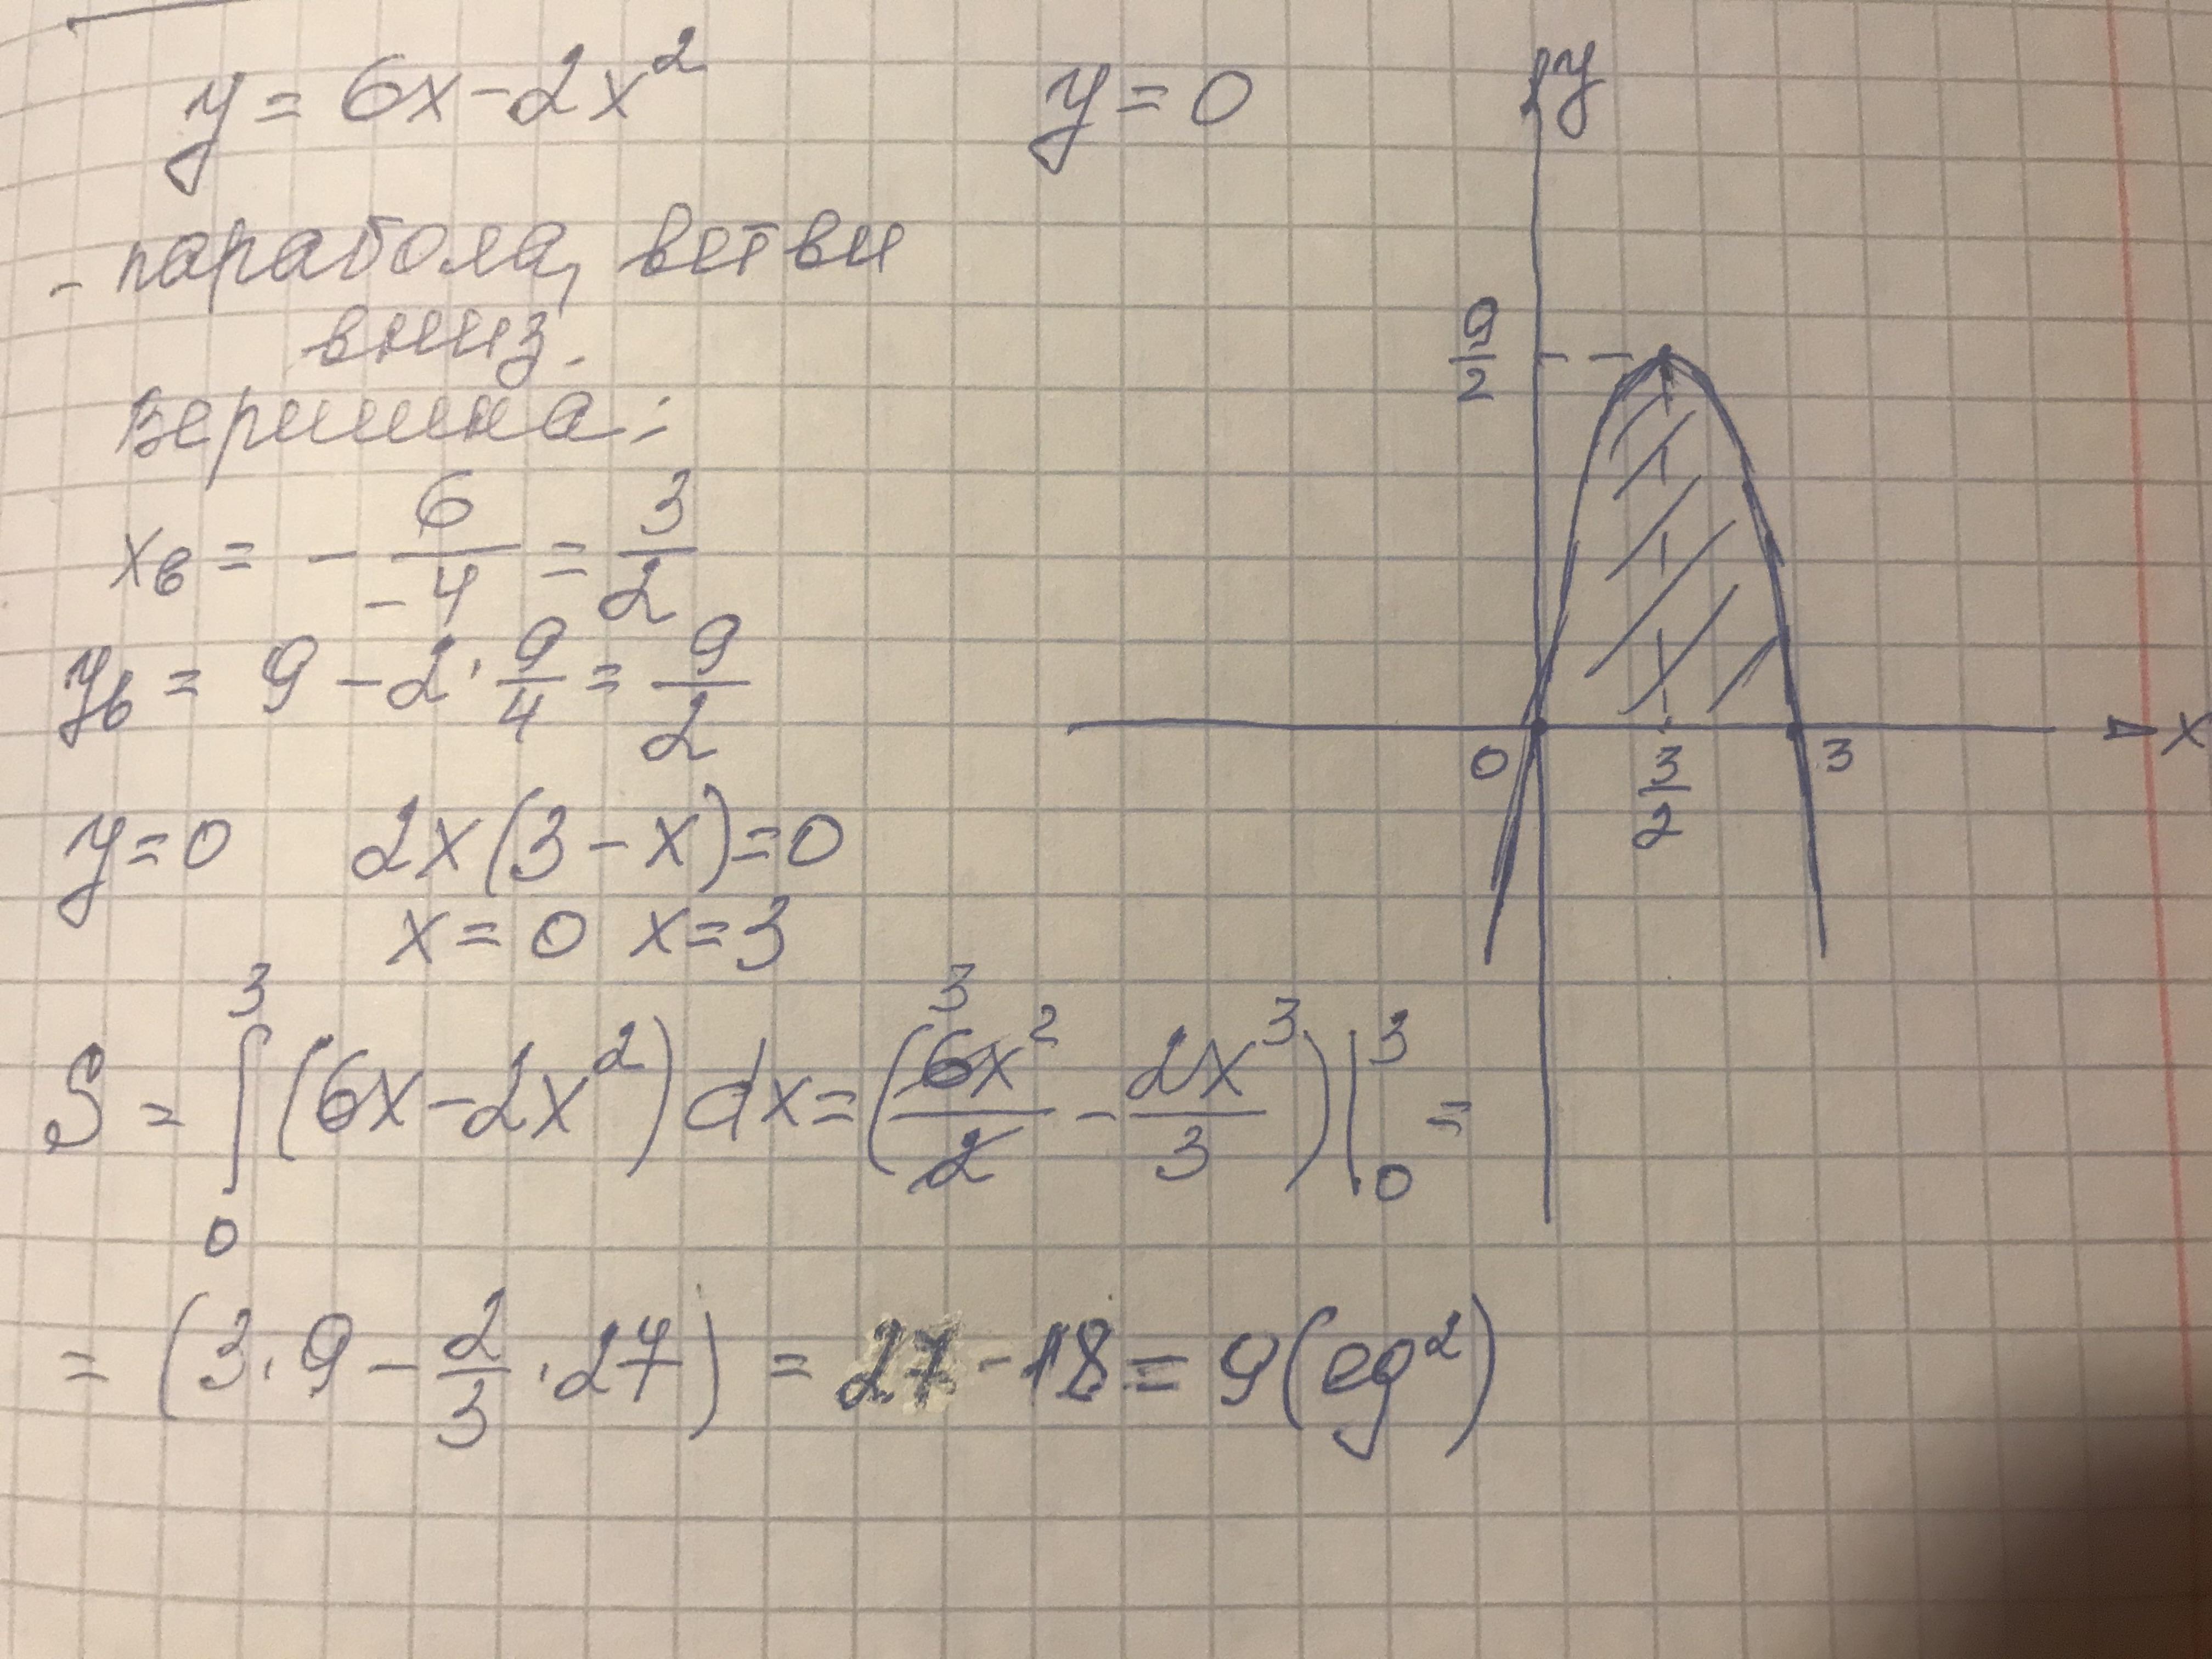 y = 6x - 2x² y = 0
- парабола, ветви
вниз.
Вершина:
xв = - 6/-4 = 3/2
yв = 9 - 2 · 9/4 = 9/2
y = 0 2x(3 - x) = 0
x = 0 x = 3
S = ∫₀³ (6x - 2x²) dx = (6x²/2 - 2x³/3) |₀³ =
3
= (3 · 9 - 2/3 · 27) = 27 - 18 = 9 (ед²)
y
9/2
0 3/2 3 x